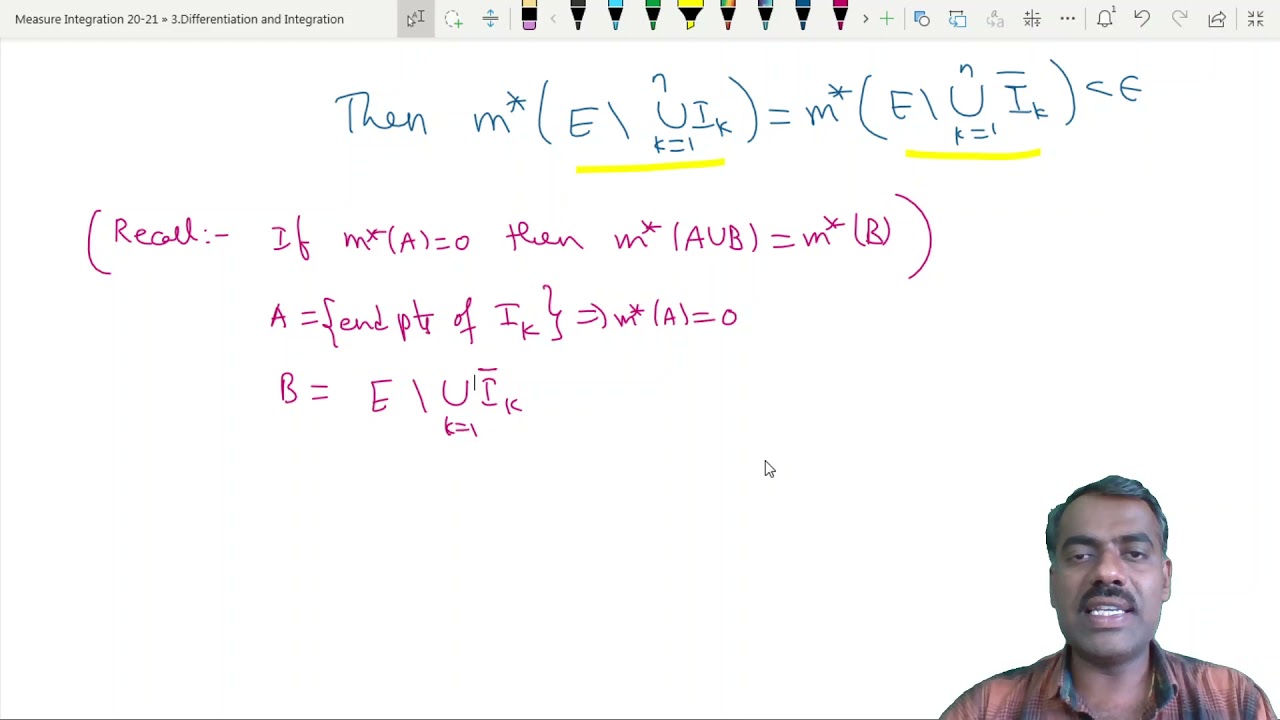 Measure Integration 20-21 » 3.Differentiation and Integration
Then m*(E \ ⋃ₖ₌₁ⁿ Iₖ) = m*(E \ ⋃ₖ₌₁ⁿ I̅ₖ) < ε
(Recall:- If m*(A)=0 then m*(A∪B) = m*(B))
A = {end pts of Iₖ} ⇒ m*(A)=0
B = E \ ⋃ₖ₌₁ I̅ₖ